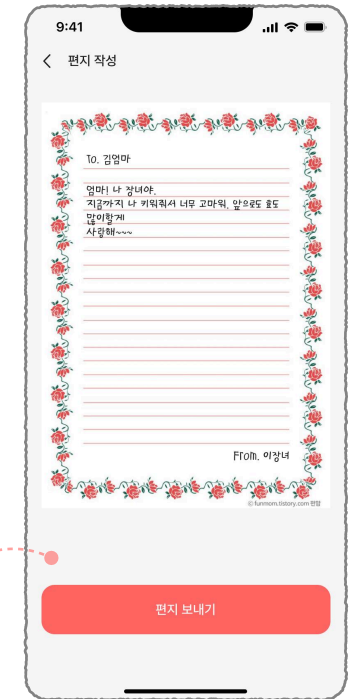 9:41
편지 작성
To. 김엄마
엄마! 나 장녀야.
지금까지 나 키워줘서 너무 고마워. 앞으로도 효도
많이할게!
사랑해~~~
From. 이장녀
© funmom.tistory.com 펀맘
편지 보내기